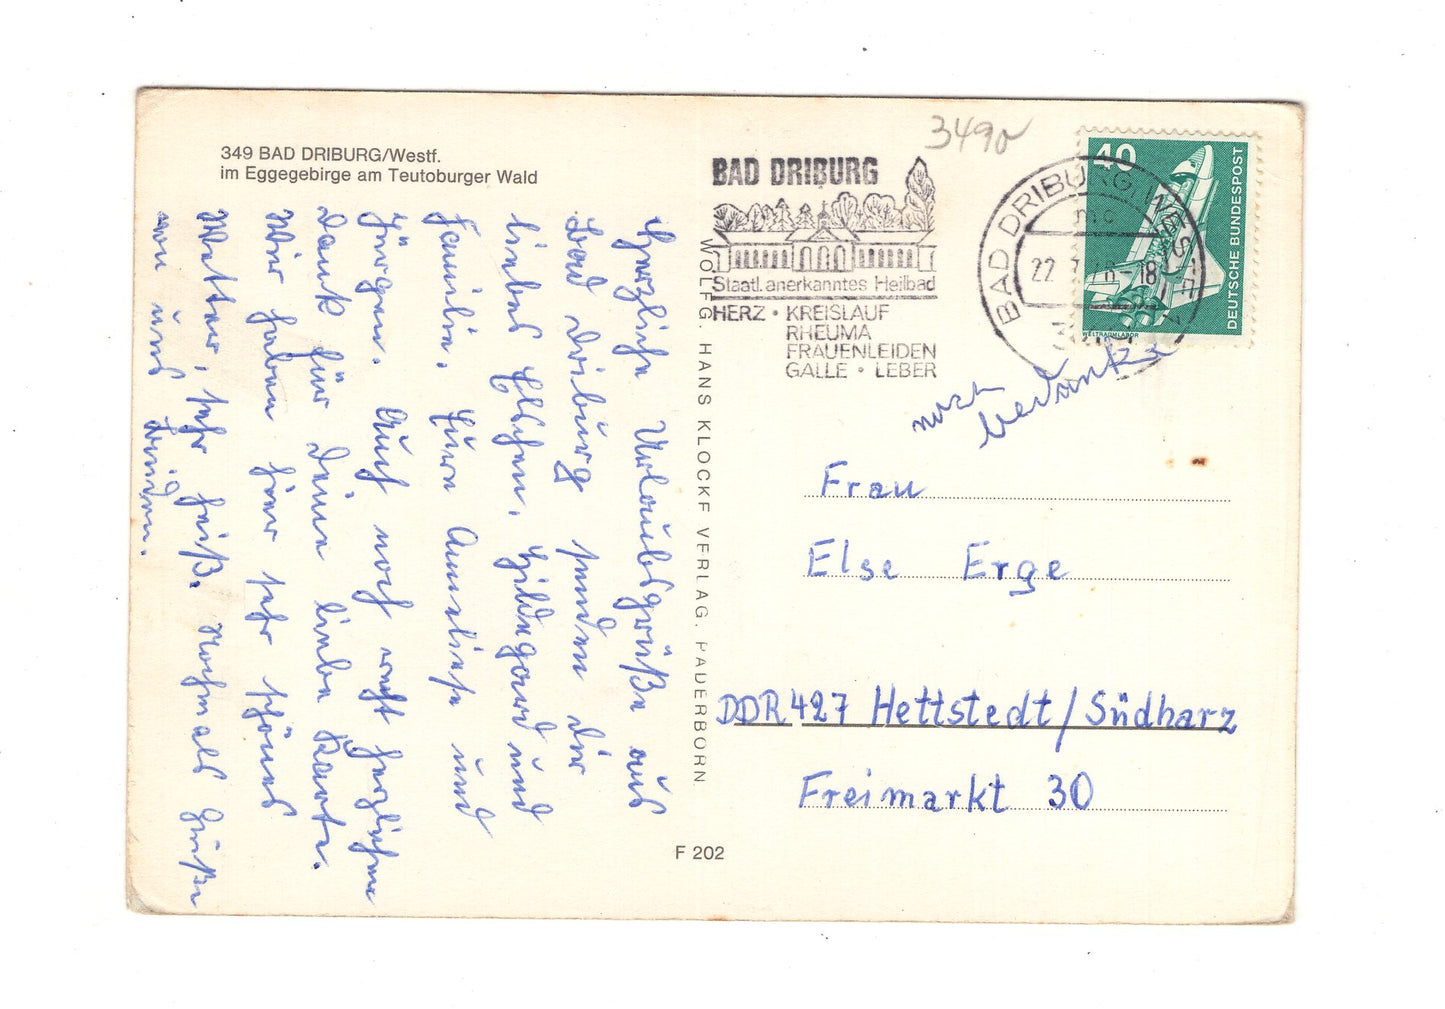 349 BAD DRIBURG/Westf.
im Eggegebirge am Teutoburger Wald
Herzliche Urlaubsgrüße aus
Bad Driburg senden dir
liebes Elschen, Hildegard und
Familie, Eure Anneliese und
Jürgen. Auch noch recht herzlichen
Dank für deine liebe Karte.
Wir haben hier sehr schönes
Wetter, sehr heiß. Nochmals Grüße
von uns beiden.
WOLFG. HANS KLOCKE VERLAG. PADERBORN.
F 202
3490
BAD DRIBURG
Staatl. anerkanntes Heilbad
HERZ · KREISLAUF
RHEUMA
FRAUENLEIDEN
GALLE · LEBER
BAD DRIBURG, WESTF
mc
22.7.76-18
40
DEUTSCHE BUNDESPOST
WELTRAUMLABOR
noch
bedanken
Frau
Else Erge
DDR 427 Hettstedt/Südharz
Freimarkt 30